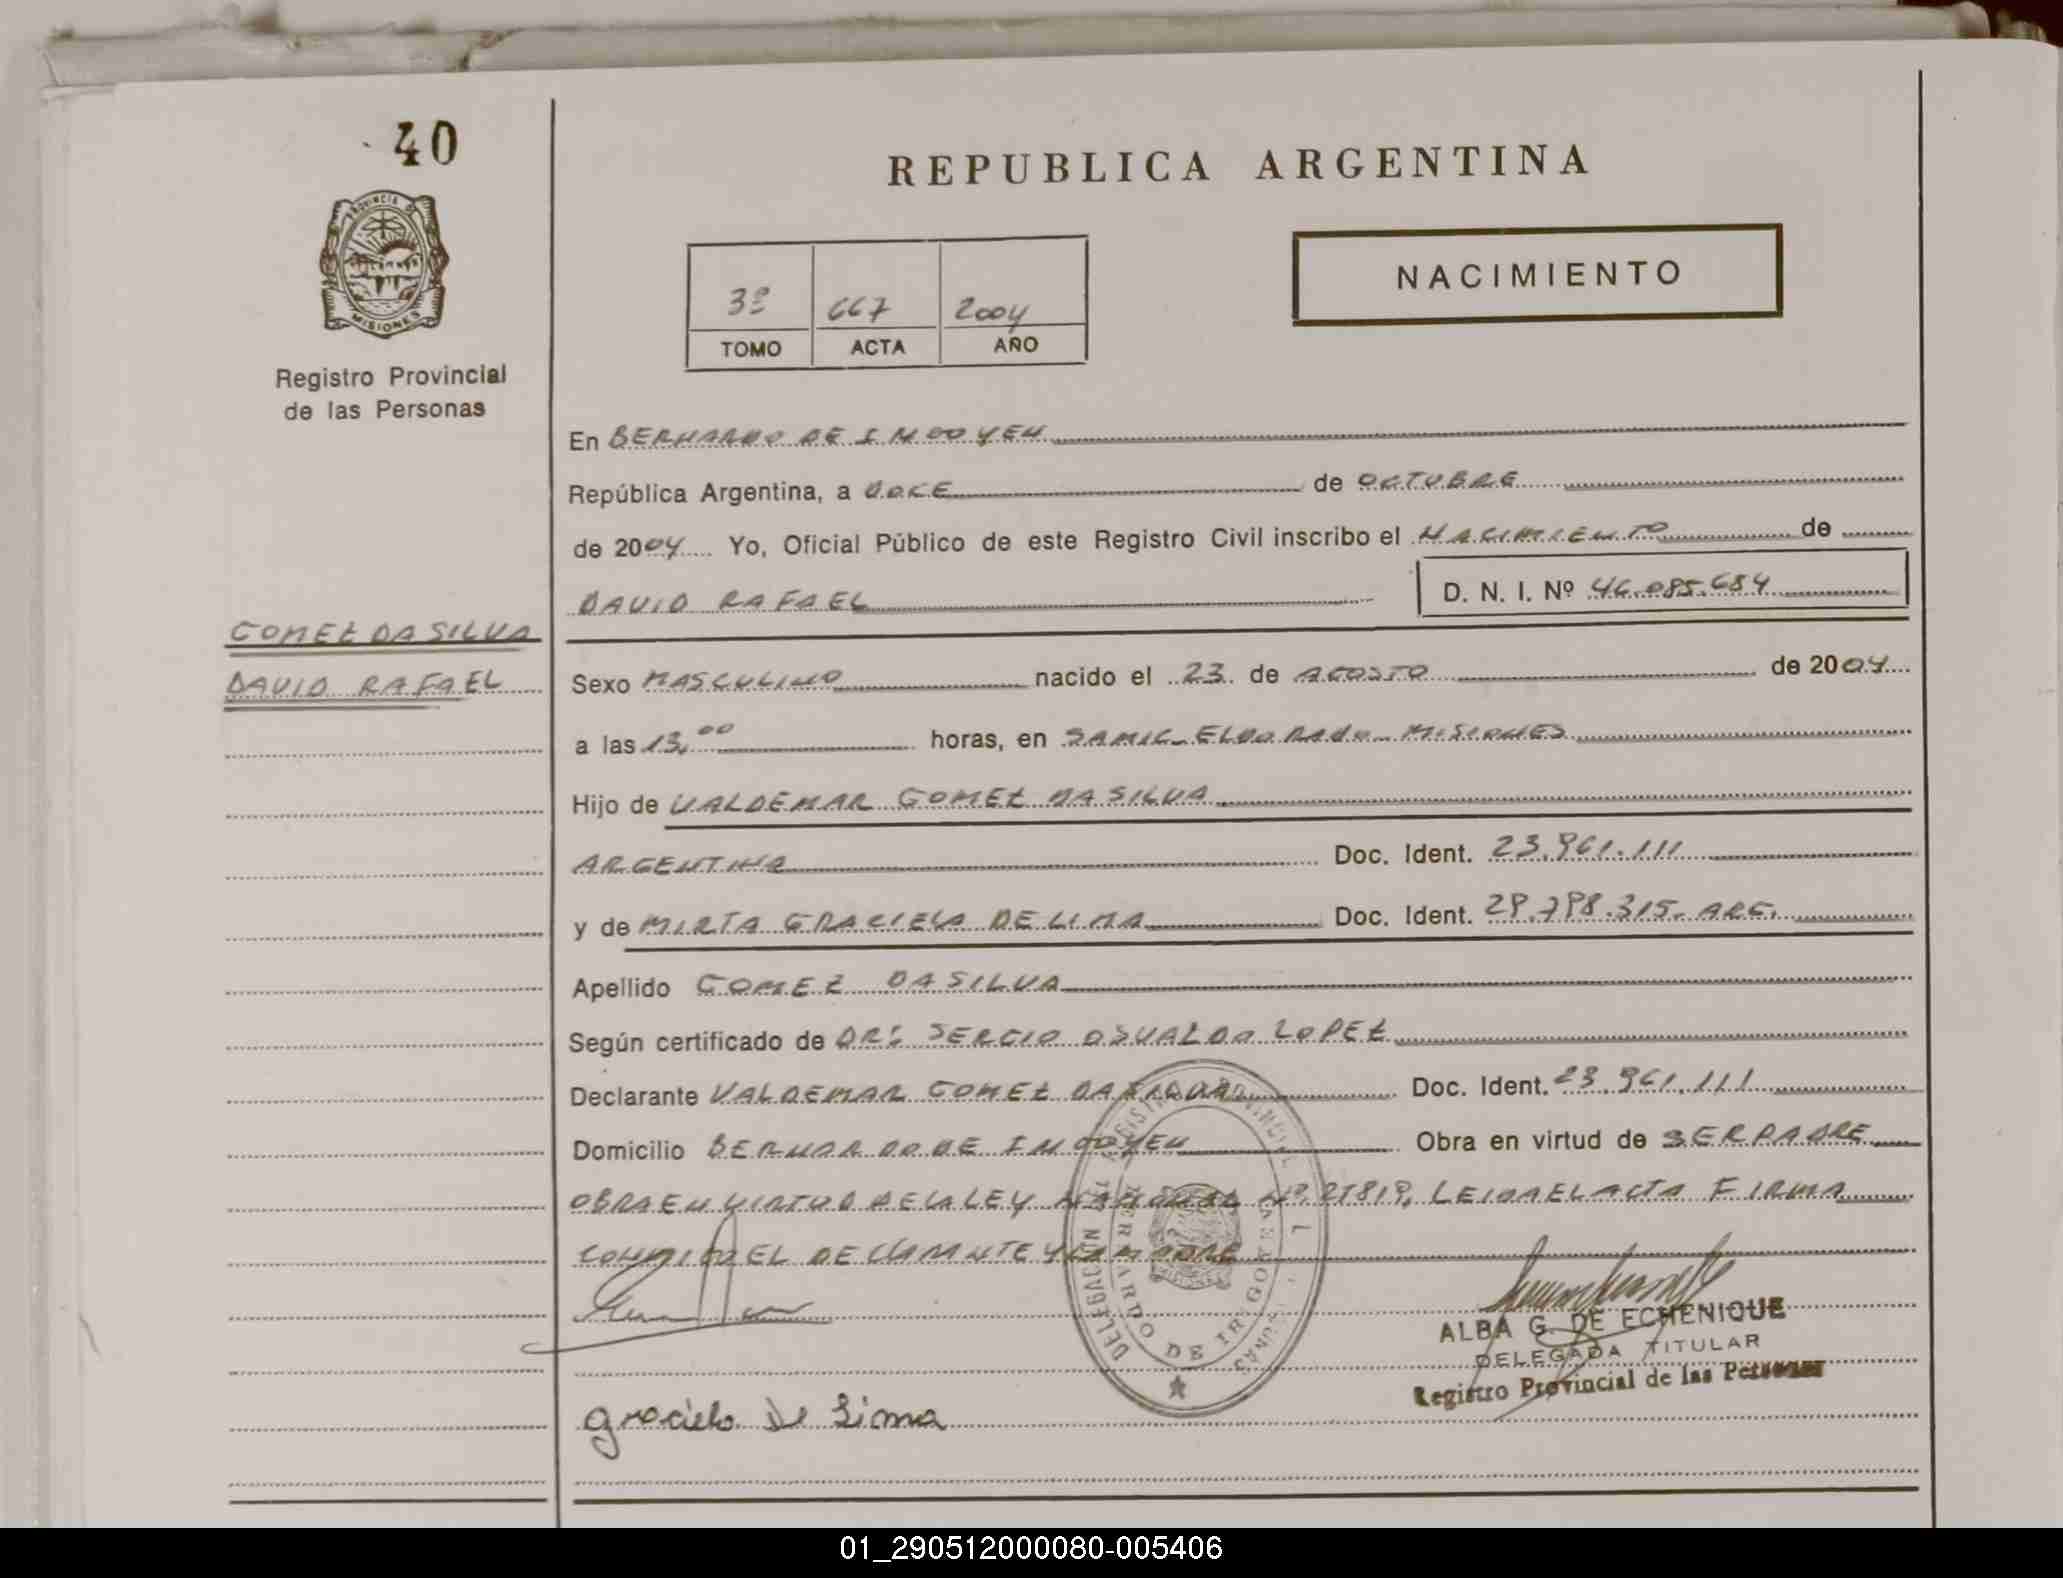 40
REPUBLICA ARGENTINA
PROVINCIA DE
MISIONES
Registro Provincial
de las Personas
NACIMIENTO
3º 667 2004
TOMO ACTA AÑO
En BERNARDO DE IRIGOYEN
República Argentina, a DOCE de OCTUBRE
de 2004 Yo, Oficial Público de este Registro Civil inscribo el NACIMIENTO de
DAVID RAFAEL D. N. I. Nº 46.085.684
GOMEZ DA SILVA
DAVID RAFAEL
Sexo MASCULINO nacido el 23 de AGOSTO de 2004
a las 13,00 horas, en SAMIC ELDORADO MISIONES
Hijo de VALDEMAR GOMEZ DA SILVA
ARGENTINA Doc. Ident. 23.961.111
y de MIRTA GRACIELA DE LIMA Doc. Ident. 29.798.315. ARG.
Apellido GOMEZ DA SILVA
Según certificado de DR: SERGIO OSVALDO LOPEZ
Declarante VALDEMAR GOMEZ DA SILVA Doc. Ident. 23.961.111
Domicilio BERNARDO DE IRIGOYEN Obra en virtud de SER PADRE
OBRA EN VIRTUD DE LA LEY NACIONAL Nº LEIDA EL ACTA FIRMA
CONMIGO EL DECLARANTE Y LA MADRE
BERNARDO DE IRIGOYEN
MISIONES
ALBA G. DE ECHENIQUE
DELEGADA TITULAR
Registro Provincial de las Personas
Graciela De Lima
01_290512000080-005406